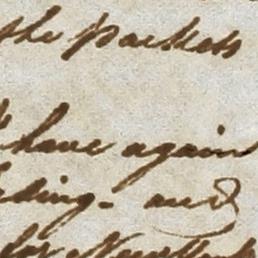 the packets
have again
ding - and
for